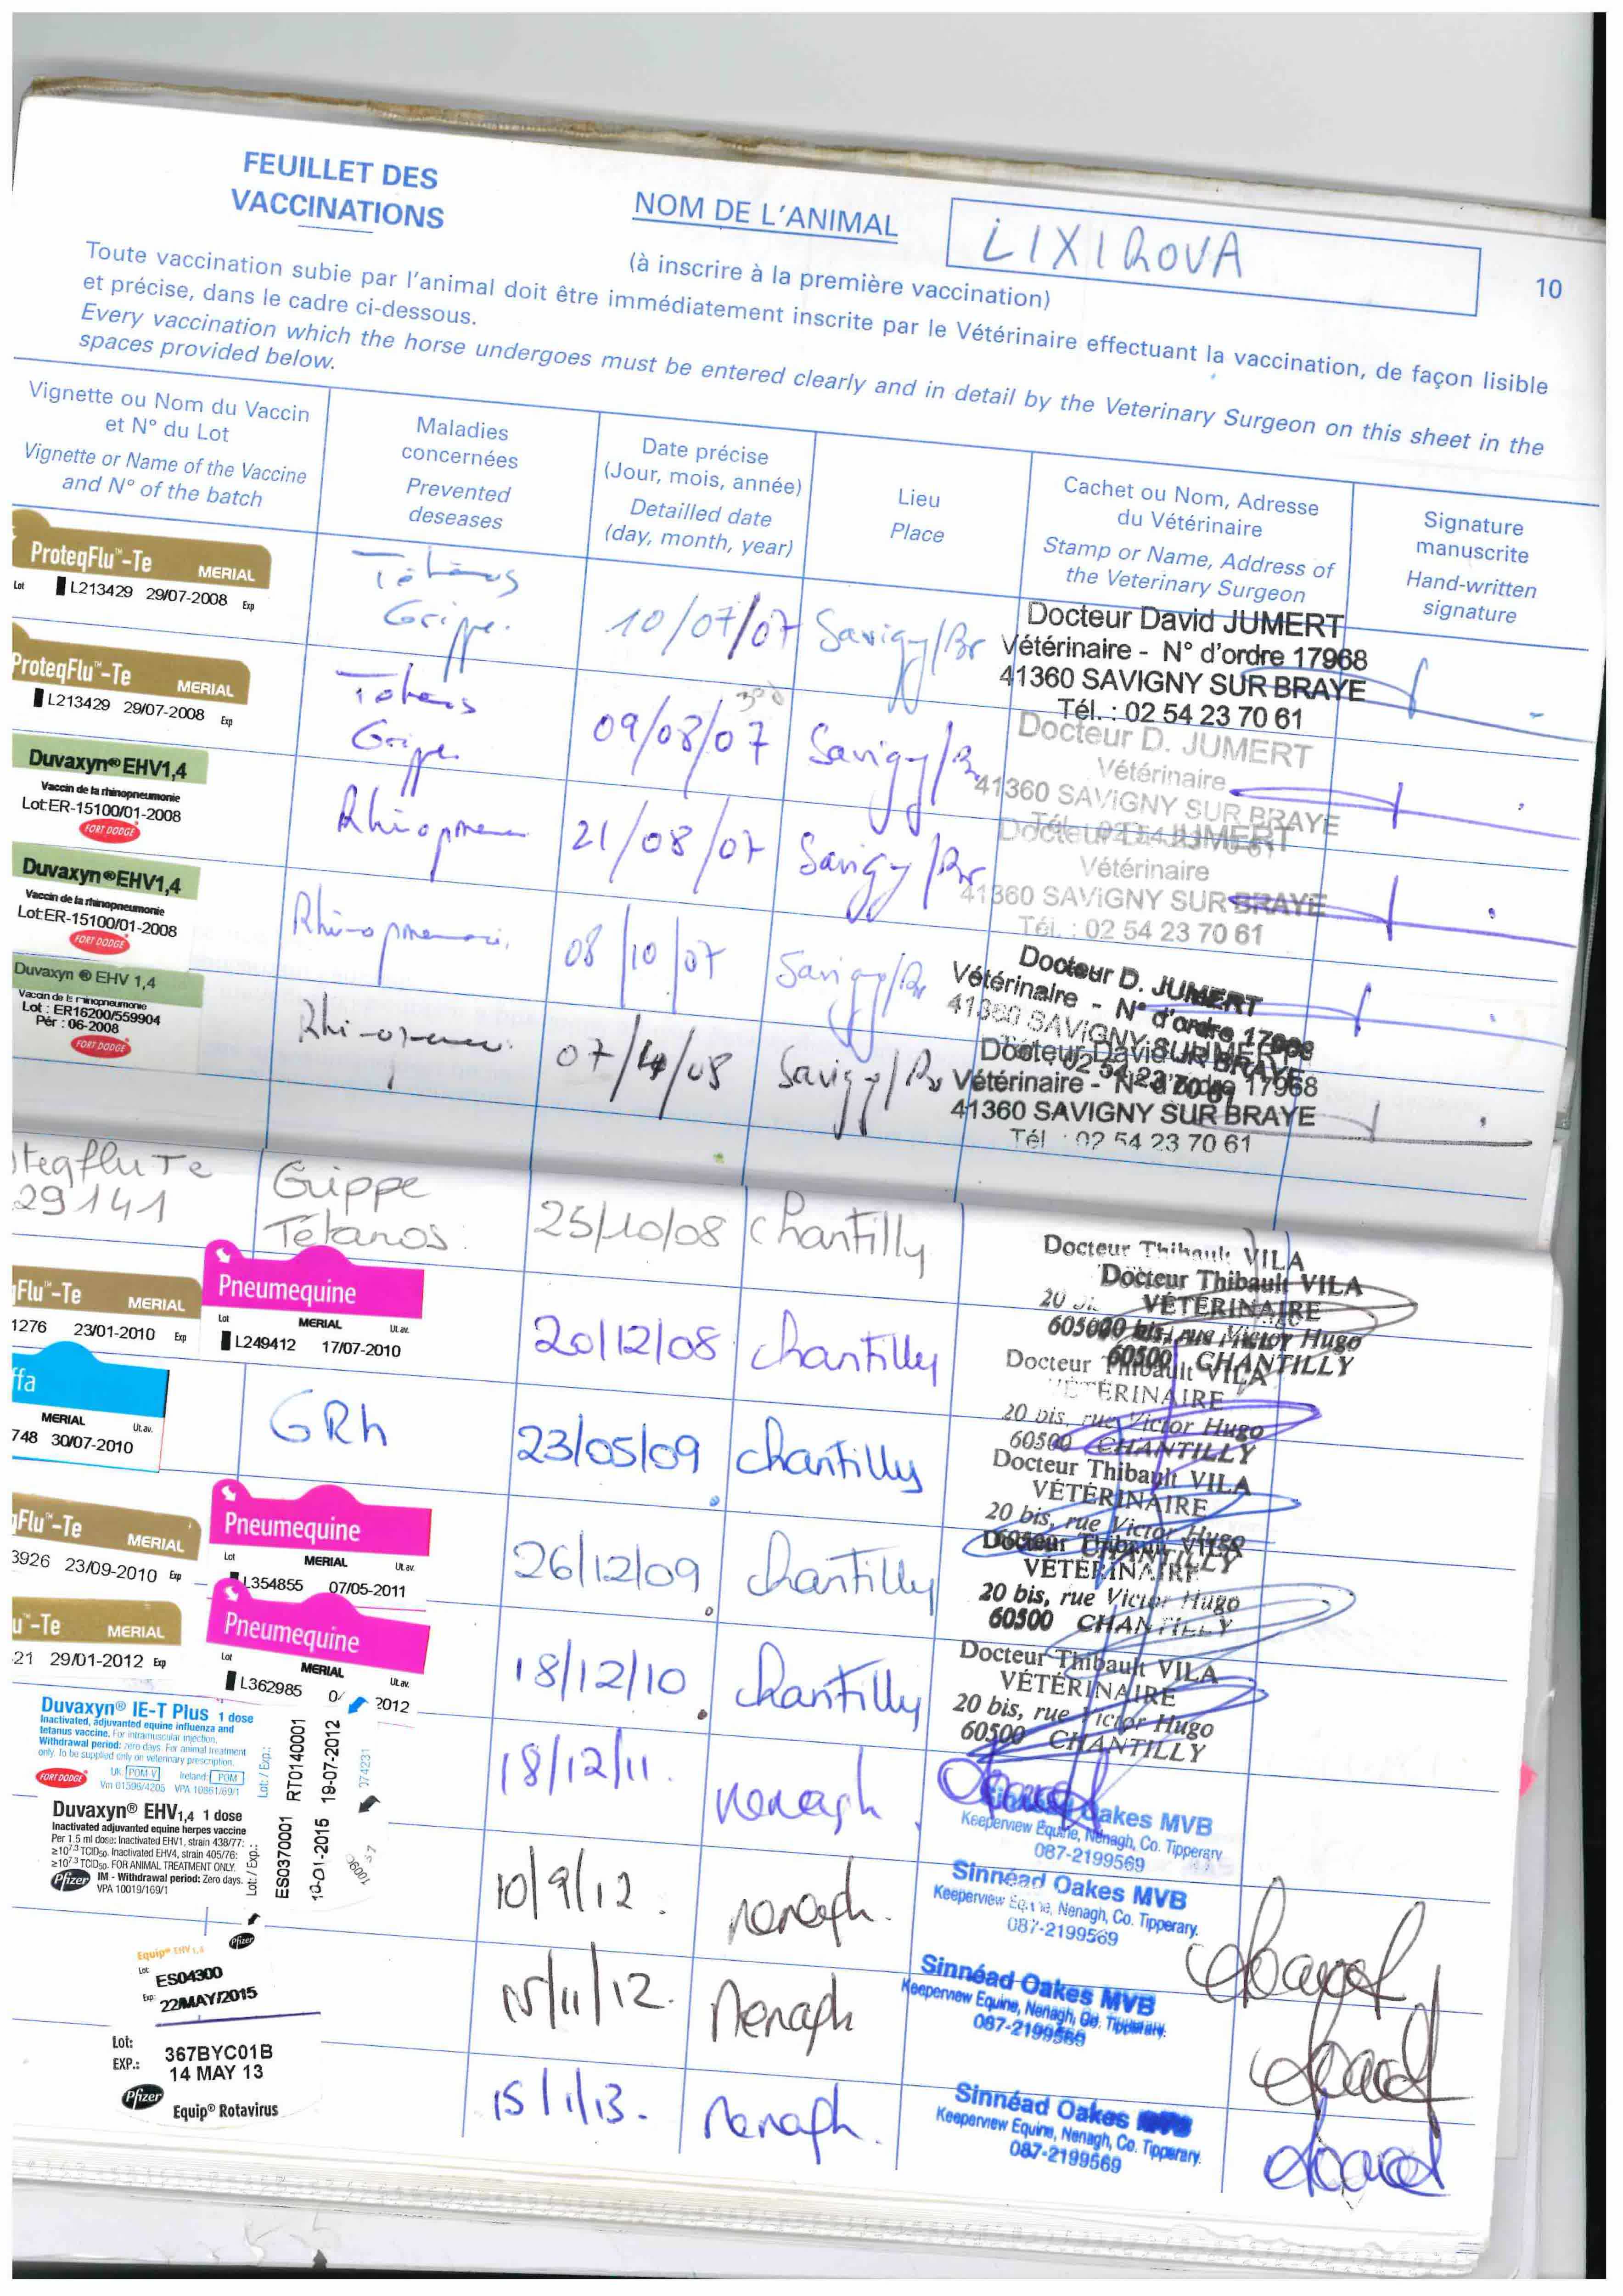 FEUILLET DES
VACCINATIONS
NOM DE L'ANIMAL
LIXIROVA
(à inscrire à la première vaccination)
10
Toute vaccination subie par l'animal doit être immédiatement inscrite par le Vétérinaire effectuant la vaccination, de façon lisible
et précise, dans le cadre ci-dessous.
Every vaccination which the horse undergoes must be entered clearly and in detail by the Veterinary Surgeon on this sheet in the
spaces provided below.
Vignette ou Nom du Vaccin
et N° du Lot
Vignette or Name of the Vaccine
and N° of the batch
Maladies
concernées
Prevented
deseases
Date précise
(Jour, mois, année)
Detailled date
(day, month, year)
Lieu
Place
Cachet ou Nom, Adresse
du Vétérinaire
Stamp or Name, Address of
the Veterinary Surgeon
Signature
manuscrite
Hand-written
signature
ProteqFlu™-Te MERIAL
Lot L213429 29/07-2008 Exp
Tétanos
Grippe.
10/07/07
Savigny/Br
Docteur David JUMERT
Vétérinaire - N° d'ordre 17968
41360 SAVIGNY SUR BRAYE
Tél. : 02 54 23 70 61
ProteqFlu™-Te MERIAL
L213429 29/07-2008 Exp
Grippe
09/08/07
Savigny/Br
Docteur D. JUMERT
Vétérinaire
41360 SAVIGNY SUR BRAYE
Duvaxyn® EHV1,4
Vaccin de la rhinopneumonie
Lot:ER-15100/01-2008
FORT DODGE
21/08/07
Savigny/Br
Docteur D. JUMERT
Vétérinaire
41360 SAVIGNY SUR BRAYE
Tél. : 02 54 23 70 61
Duvaxyn®EHV1,4
Vaccin de la rhinopneumonie
Lot:ER-15100/01-2008
FORT DODGE
08/10/07
Savigny/Br
Docteur D. JUMERT
Vétérinaire - N° d'ordre 17968
41360 SAVIGNY SUR BRAYE
02 54 23 70 61
Duvaxyn ® EHV 1,4
Vaccin de la rhinopneumonie
Lot : ER16200/559904
Pér : 06-2008
FORT DODGE
07/4/08
Savigny/Br
Docteur David JUMERT
Vétérinaire - N° d'ordre 17968
41360 SAVIGNY SUR BRAYE
Tél : 02 54 23 70 61
oteqflu Te
29141
Grippe
Tétanos
25/10/08
Chantilly
Docteur Thibault VILA
Flu™-Te MERIAL
1276 23/01-2010 Exp
Pneumequine
Lot MERIAL Ut.av.
L249412 17/07-2010
20/12/08
Chantilly
Docteur Thibault VILA
VÉTÉRINAIRE
20 bis, rue Victor Hugo
60500 CHANTILLY
ffa
MERIAL Ut.av.
748 30/07-2010
GRh
23/05/09
Chantilly
Docteur Thibault VILA
VÉTÉRINAIRE
20 bis, rue Victor Hugo
60500 CHANTILLY
qFlu™-Te MERIAL
3926 23/09-2010 Exp
Pneumequine
Lot MERIAL Ut.av.
L354855 07/05-2011
26/12/09
Chantilly
Docteur Thibault VILA
VÉTÉRINAIRE
20 bis, rue Victor Hugo
60500 CHANTILLY
Docteur Thibault VILA
VÉTÉRINAIRE
20 bis, rue Victor Hugo
60500 CHANTILLY
u™-Te MERIAL
21 29/01-2012 Exp
Pneumequine
Lot MERIAL Ut.av.
L362985 0/ 2012
18/12/10
Chantilly
Docteur Thibault VILA
VÉTÉRINAIRE
20 bis, rue Victor Hugo
60500 CHANTILLY
Duvaxyn® IE-T Plus 1 dose
Inactivated, adjuvanted equine influenza and
tetanus vaccine. For intramuscular injection.
Withdrawal period: zero days. For animal treatment
only. To be supplied only on veterinary prescription.
FORT DODGE
UK: POM-V Ireland: POM
Vm 01596/4205 VPA 10861/69/1
Lot: / Exp.:
RT0140001
19-07-2012
074231
18/12/11.
nenagh.
Sinnéad Oakes MVB
Keeperview Equine, Nenagh, Co. Tipperary
087-2199569
Duvaxyn® EHV1,4 1 dose
Inactivated adjuvanted equine herpes vaccine
Per 1.5 ml dose: Inactivated EHV1, strain 438/77:
≥10^7.3 TCID50. Inactivated EHV4, strain 405/76:
≥10^7.3 TCID50. FOR ANIMAL TREATMENT ONLY.
Pfizer
IM - Withdrawal period: Zero days.
VPA 10019/169/1
Lot: / Exp.:
ES0370001
10/9/12.
nenagh.
Sinnéad Oakes MVB
Keeperview Equine, Nenagh, Co. Tipperary.
087-2199569
Equip® EHV 1,4
Pfizer
Lot: ES04300
Exp: 22/MAY/2015
15/11/12.
Nenagh
Sinnéad Oakes MVB
Keeperview Equine, Nenagh, Co. Tipperary.
087-2199569
Lot: 367BYC01B
EXP.: 14 MAY 13
Pfizer
Equip® Rotavirus
15/1/13.
Nenagh.
Sinnéad Oakes MVB
Keeperview Equine, Nenagh, Co. Tipperary.
087-2199569